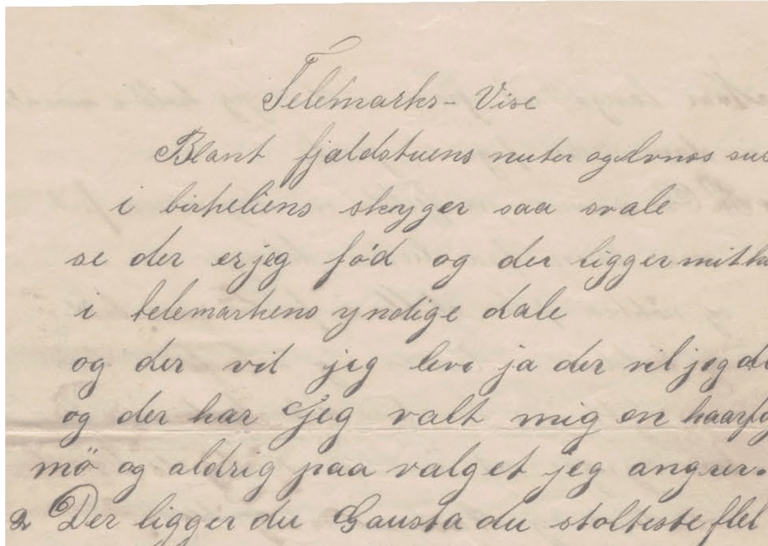 Telemarks-Vise
Blant fjældstuens nuter og elvnes sus
i birkeliens skyger saa svale
se der er jeg fød og der ligger mit
i telemarkens yndige dale
og der vil jeg leve ja der vil jeg
og der har jeg valt mig en haarfag
mö og aldrig paa valget jeg angrer.
2 Der ligger du Gausta du stolteste